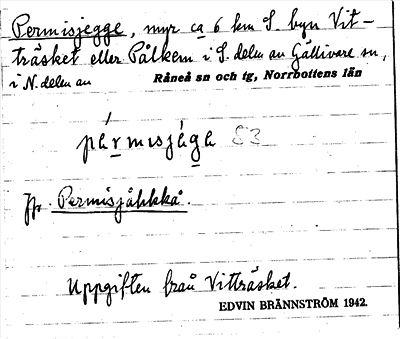 Permisjegge, myr ca 6 km S. byn Vit-
träsket eller Pålkem i S. delen av Gällivare sn,
i N. delen av Råneå sn och tg, Norrbottens län
pèrmisjága 53
Jfr. Permisjåhkkå.
Uppgiften från Vitträsket.
EDVIN BRÄNNSTRÖM 1942.